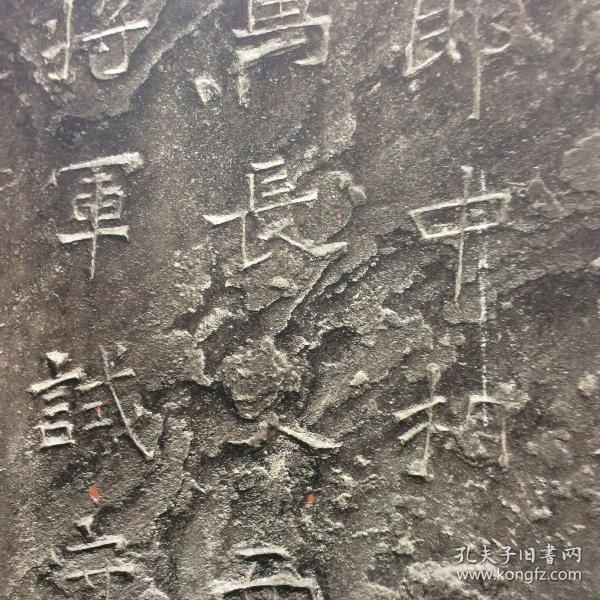 郎中
馬長
將軍試守
孔夫子旧書网
www.kongfz.com